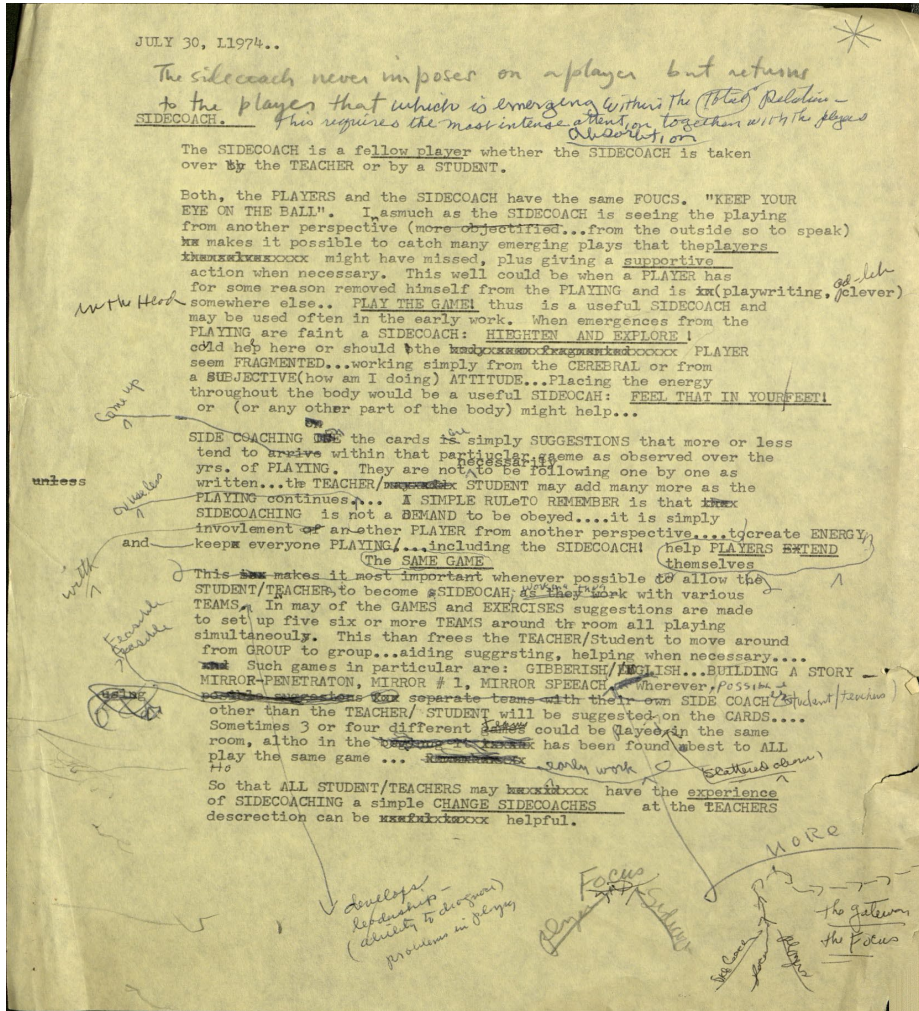 JULY 30, L1974..
The sidecoach never imposes on a player but returns
to the player that which is emerging within the (Total) Relation-
SIDECOACH. This requires the most intense attention together with the players
absorution
The SIDECOACH is a fellow player whether the SIDECOACH is taken
over by the TEACHER or by a STUDENT.
Both, the PLAYERS and the SIDECOACH have the same FOUCS. "KEEP YOUR
EYE ON THE BALL". I asmuch as the SIDECOACH is seeing the playing
from another perspective (more objectified...from the outside so to speak)
makes it possible to catch many emerging plays that theplayers
might have missed, plus giving a supportive
action when necessary. This well could be when a PLAYER has
for some reason removed himself from the PLAYING and is (playwriting, ad-lib clever)
in the Head somewhere else.. PLAY THE GAME! thus is a useful SIDECOACH and
may be used often in the early work. When emergences from the
PLAYING are faint a SIDECOACH: HIEGHTEN AND EXPLORE !
could help here or should the PLAYER
seem FRAGMENTED...working simply from the CEREBRAL or from
a SUBJECTIVE(how am I doing) ATTITUDE...Placing the energy
throughout the body would be a useful SIDEOCAH: FEEL THAT IN YOURFEET!
or (or any other part of the body) might help...
Come up
on
SIDE COACHING the cards is are simply SUGGESTIONS that more or less
tend to arrive within that partiuclar gaeme as observed over the
necessarily
yrs. of PLAYING. They are not to be following one by one as
unless written...the TEACHER/ STUDENT may add many more as the
or useless
PLAYING continues.... A SIMPLE RULeTO REMEMBER is that
SIDECOACHING is not a DEMAND to be obeyed....it is simply
invovlement of an other PLAYER from another perspective....tocreate ENERGY,
and keep everyone PLAYING/...including the SIDECOACH! help PLAYERS EXTEND
The SAME GAME themselves
with
This makes it most important whenever possible to allow the
STUDENT/TEACHER, to become a SIDEOCAH, as they work with various
TEAMS. In may of the GAMES and EXERCISES suggestions are made
to set up five six or more TEAMS around the room all playing
simultaneouly. This than frees the TEACHER/Student to move around
Feasible
feasible
from GROUP to group...aiding suggrsting, helping when necessary....
Such games in particular are: GIBBERISH/ENGLISH...BUILDING A STORY
MIRROR-PENETRATON, MIRROR # 1, MIRROR SPEEACH. Wherever possible
using possible suggestions for separate teams with their own SIDE COACH student/teachers
other than the TEACHER/ STUDENT will be suggested on the CARDS....
Sometimes 3 or four different games could be played in the same
room, altho in the has been found best to ALL
early work
play the same game ...
scattered
So that ALL STUDENT/TEACHERS may have the experience
of SIDECOACHING a simple CHANGE SIDECOACHES at the TEACHERS
descrection can be helpful.
MORE
develops
leadership-
(ability to diagnose)
problems in playing
Focus
Player
Sidecoach
Side Coach
players
the gateway
the Focus